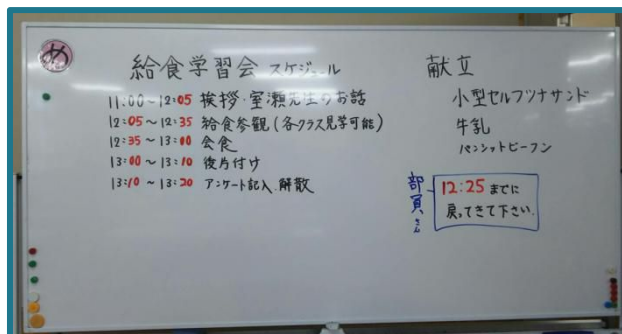 め
給食学習会 スケジュール
11:00～12:05 挨拶・室瀬先生のお話
12:05～12:35 給食参観(各クラス見学可能)
12:35～13:00 会食
13:00～13:10 後片付け
13:10～13:20 アンケート記入、解散
献立
小型セルフツナサンド
牛乳
パンシットビーフン
部員さん
12:25 までに
戻ってきて下さい.